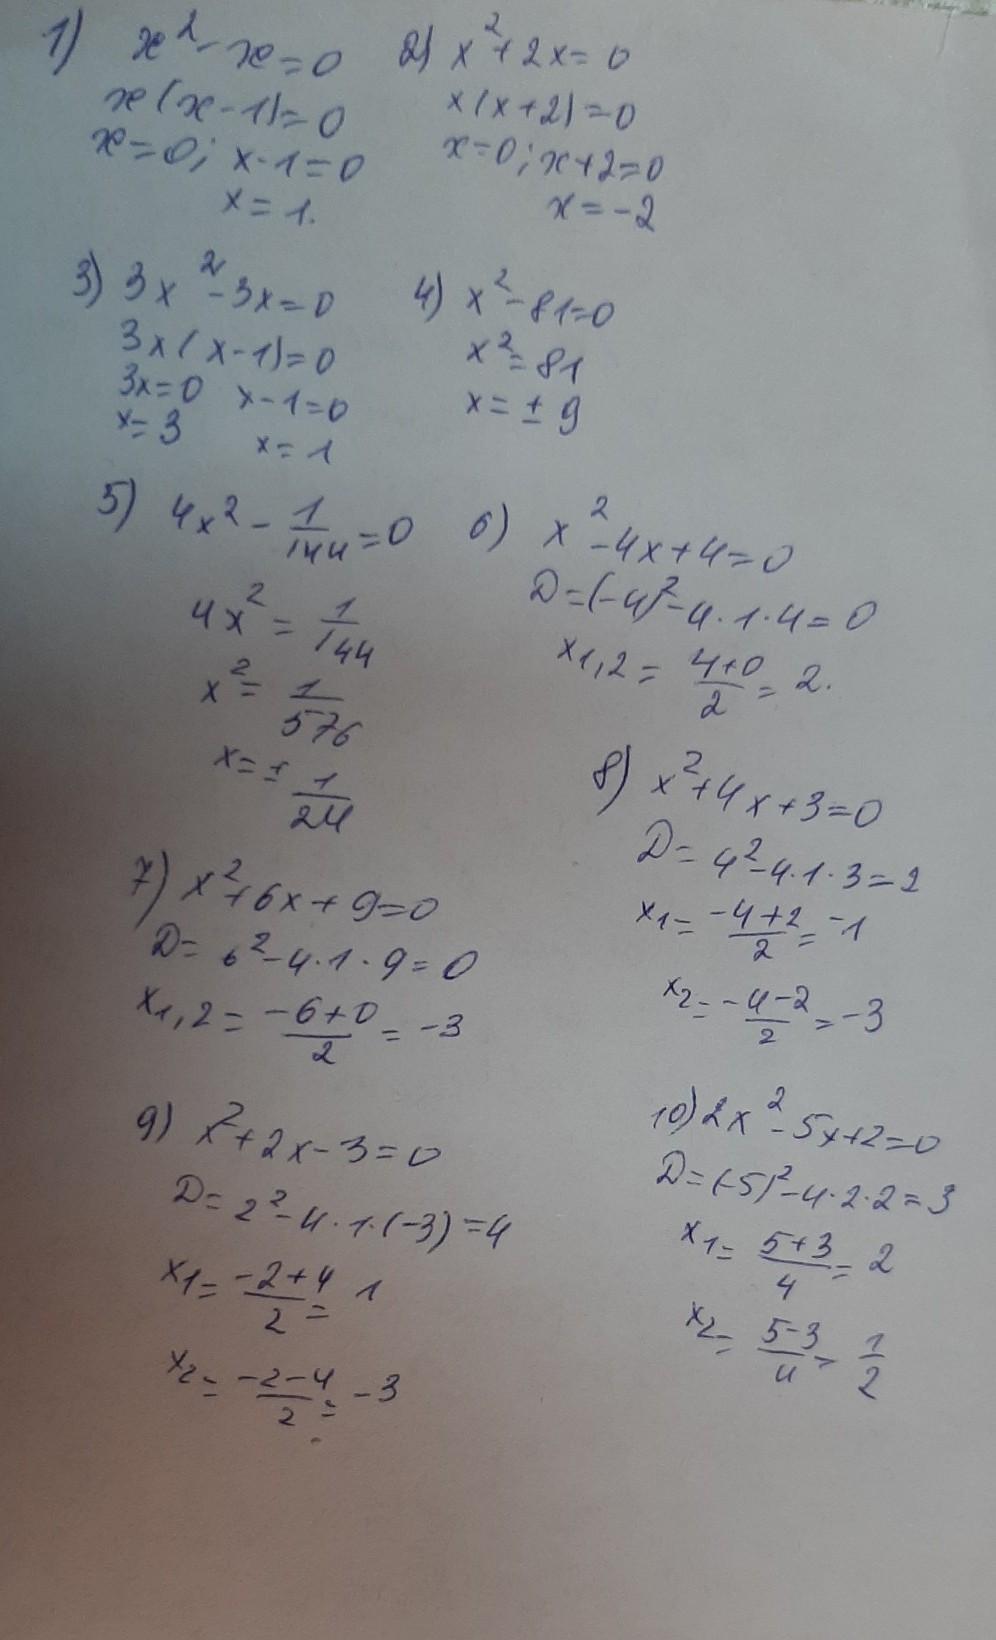 1) x² - x = 0
x(x - 1) = 0
x = 0; x - 1 = 0
x = 1.
2) x² + 2x = 0
x(x + 2) = 0
x = 0; x + 2 = 0
x = -2
3) 3x² - 3x = 0
3x(x - 1) = 0
3x = 0 x - 1 = 0
x = 3 x = 1
4) x² - 81 = 0
x² = 81
x = ± 9
5) 4x² - 1/144 = 0
4x² = 1/144
x² = 1/576
x = ± 1/24
6) x² - 4x + 4 = 0
D = (-4)² - 4 · 1 · 4 = 0
x1,2 = (4+0)/2 = 2.
7) x² + 6x + 9 = 0
D = 6² - 4 · 1 · 9 = 0
x1,2 = (-6+0)/2 = -3
8) x² + 4x + 3 = 0
D = 4² - 4 · 1 · 3 = 2
x1 = (-4+2)/2 = -1
x2 = (-4-2)/2 = -3
9) x² + 2x - 3 = 0
D = 2² - 4 · 1 · (-3) = 4
x1 = (-2+4)/2 = 1
x2 = (-2-4)/2 = -3
10) 2x² - 5x + 2 = 0
D = (-5)² - 4 · 2 · 2 = 3
x1 = (5+3)/4 = 2
x2 = (5-3)/4 = 1/2